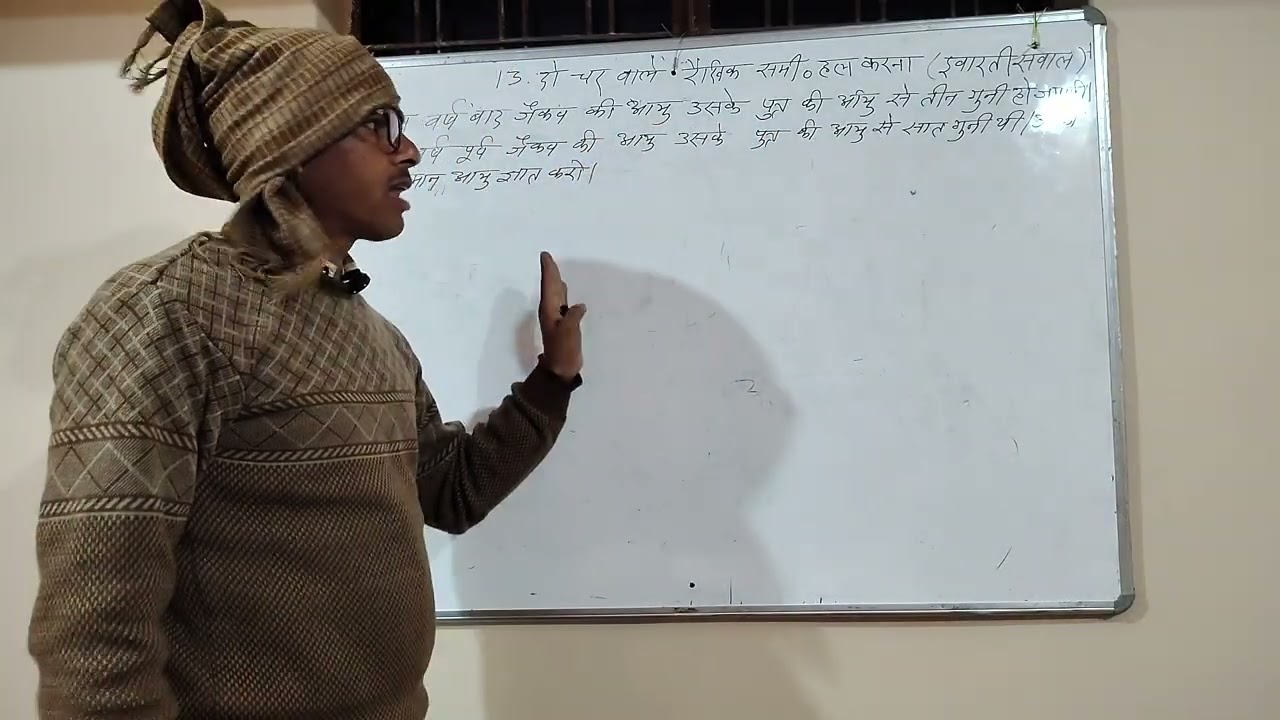 13. दो चर वाले रैखिक समी० हल करना (इबारती सवाल)
वर्ष बाद जैकब की आयु उसके पुत्र की आयु से तीन गुनी हो
वर्ष पूर्व जैकब की आयु उसके पुत्र की आयु से सात गुनी थी।
आयु ज्ञात करो।